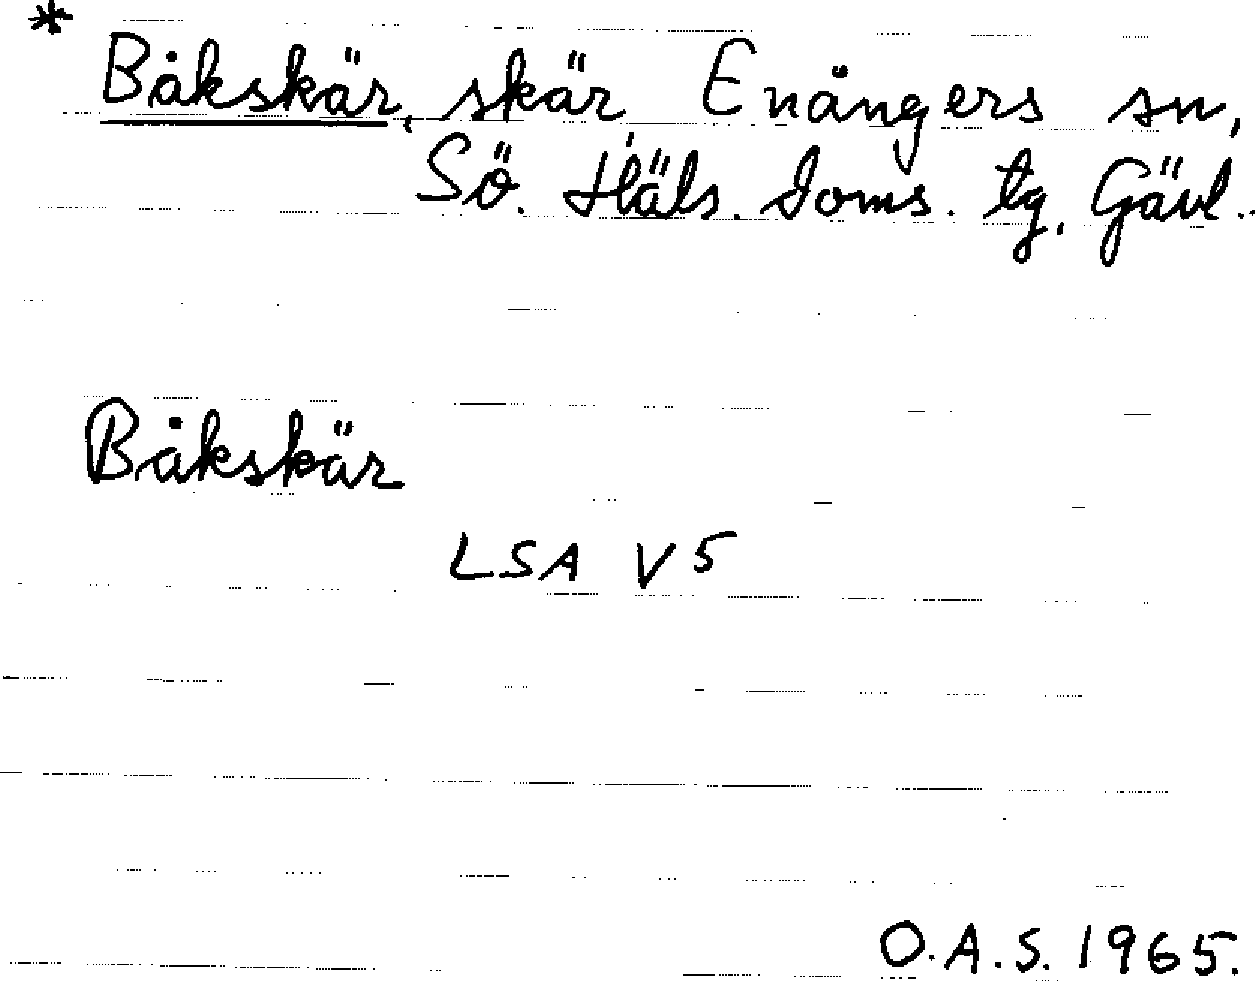 * Båkskär, skär, Enångers sn,
Sö. Häls. doms. tg, Gävl..
Båkskär
LSA V5
O.A.S. 1965.